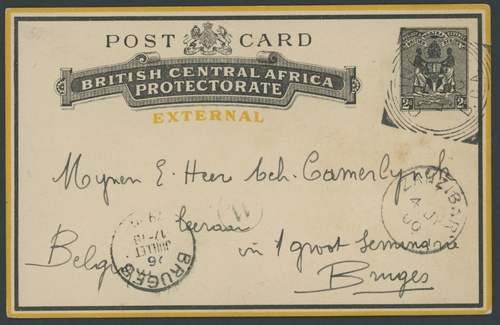 POST CARD
BRITISH CENTRAL AFRICA
PROTECTORATE
EXTERNAL
2d 2d
Mynen E. Heer Ach. Camerlynck
ZANZIBAR
4 JY
00
11
leeraar
Belgie
in 't groot Seminarie
Bruges
BRUGES
26
JUILLET
17-18